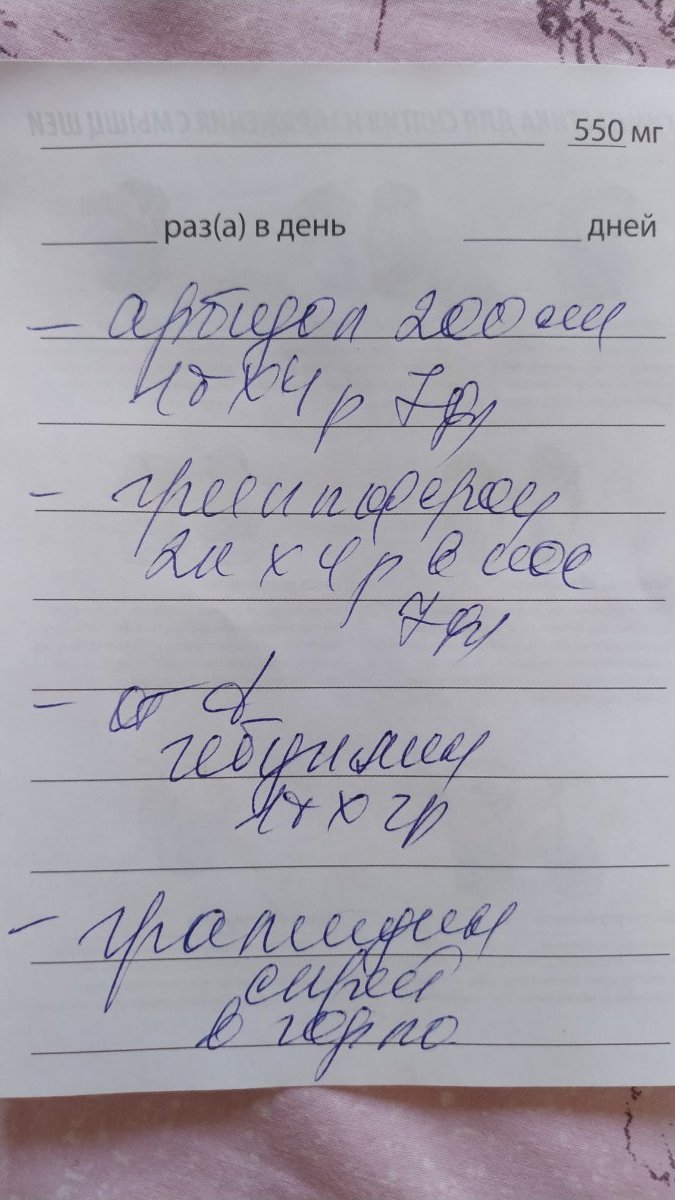 550 мг
раз(а) в день дней
- арбидол 200 мг
1т х 4 р 7дн
- гриппферон
2к х 4 р в нос
7дн
- от
1т х 2р
- грамидин
спрей
в горло